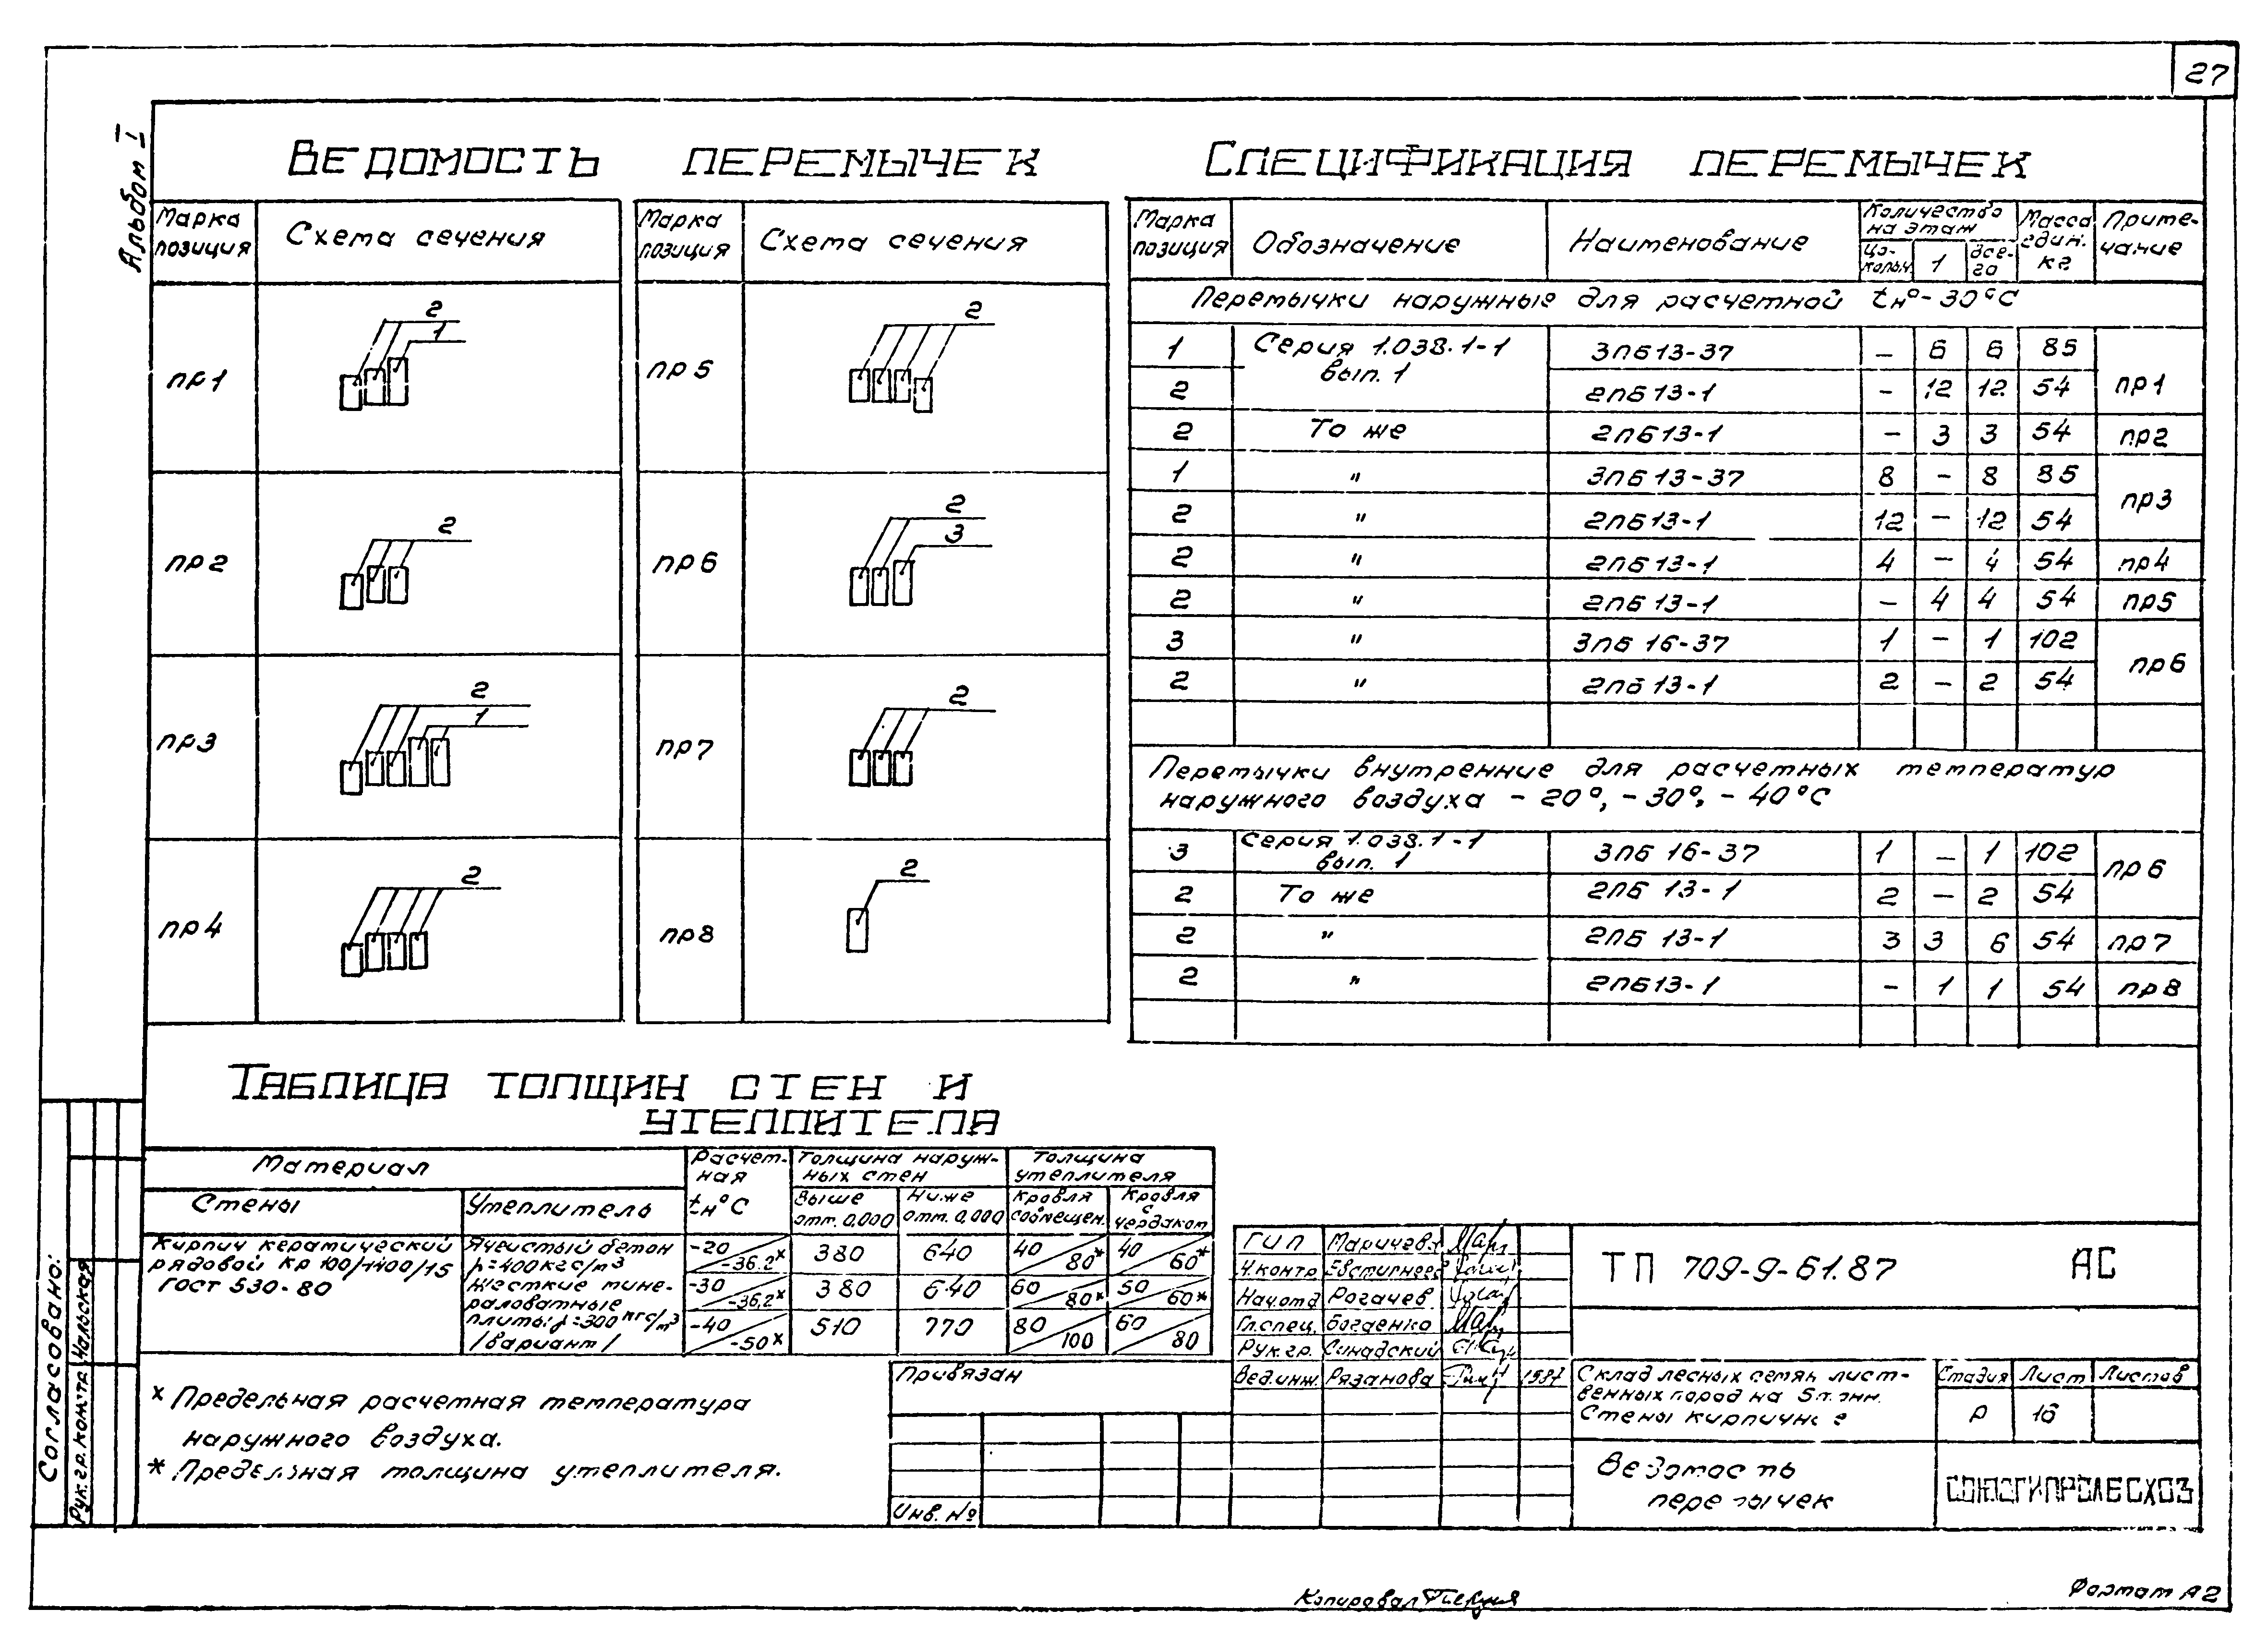 27
Альбом I
Ведомость перемычек
Марка позиция | Схема сечения | Марка позиция | Схема сечения
пр1 | 2 | 1 | пр5 | 2
пр2 | 2 | пр6 | 2 | 3
пр3 | 2 | 1 | пр7 | 2
пр4 | 2 | пр8 | 2
Спецификация перемычек
Марка позиция | Обозначение | Наименование | Количество на этаж | Масса един. кг | Примечание
Цокольн. | 1 | всего
Перемычки наружные для расчетной tн°-30°С
1 | Серия 1.038.1-1 вып. 1 | 3ПБ13-37 | – | 6 | 6 | 85 | пр1
2 | 2ПБ13-1 | – | 12 | 12 | 54
2 | То же | 2ПБ13-1 | – | 3 | 3 | 54 | пр2
1 | " | 3ПБ13-37 | 8 | – | 8 | 85 | пр3
2 | " | 2ПБ13-1 | 12 | – | 12 | 54
2 | " | 2ПБ13-1 | 4 | – | 4 | 54 | пр4
2 | " | 2ПБ13-1 | – | 4 | 4 | 54 | пр5
3 | " | 3ПБ16-37 | 1 | – | 1 | 102 | пр6
2 | " | 2ПБ13-1 | 2 | – | 2 | 54
Перемычки внутренние для расчетных температур
наружного воздуха -20°, -30°, -40°С
3 | Серия 1.038.1-1 вып. 1 | 3ПБ 16-37 | 1 | – | 1 | 102 | пр6
2 | То же | 2ПБ 13-1 | 2 | – | 2 | 54
2 | " | 2ПБ 13-1 | 3 | 3 | 6 | 54 | пр7
2 | " | 2ПБ13-1 | – | 1 | 1 | 54 | пр8
Таблица толщин стен и
утеплителя
Материал | Расчетная tн°С | Толщина наружных стен | Толщина утеплителя
Стены | Утеплитель | Выше отм. 0,000 | Ниже отм. 0,000 | Кровля совмещен. | Кровля с чердаком
Кирпич керамический рядовой Кр 100/1400/15 ГОСТ 530-80
Ячеистый бетон ρ=400кгс/м³
Жесткие минераловатные плиты ρ=300 кгс/м³ /вариант/
-20/-36.2ˣ | 380 | 640 | 40/80* | 40/60*
-30/-36,2ˣ | 380 | 640 | 60/80* | 50/60*
-40/-50ˣ | 510 | 770 | 80/100 | 60/80
ˣ Предельная расчетная температура
наружного воздуха.
* Предельная толщина утеплителя.
Согласовано:
Рук.гр.
Привязан
Инв. №
ГИП | Маричев
Н.контр. | Евстигнеев
Нач.отд | Рогачев
Гл.спец. | Богденко
Рук.гр. | Синадский
Вед.инж. | Рязанова | 1987
ТП 709-9-61.87 | АС
Склад лесных семян лист-
венных пород на 5 тонн.
Стены кирпичные
Стадия | Лист | Листов
Р | 16
Ведомость
перемычек
СОЮЗГИПРОЛЕСХОЗ
Копировал
Формат А2